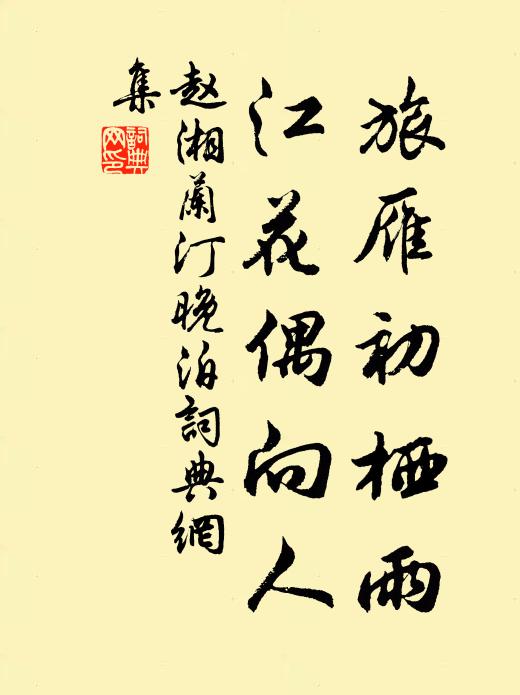 旅雁初栖雨
江花偶向人
赵湘蘭汀晚泊詞典網
集
詞典網印